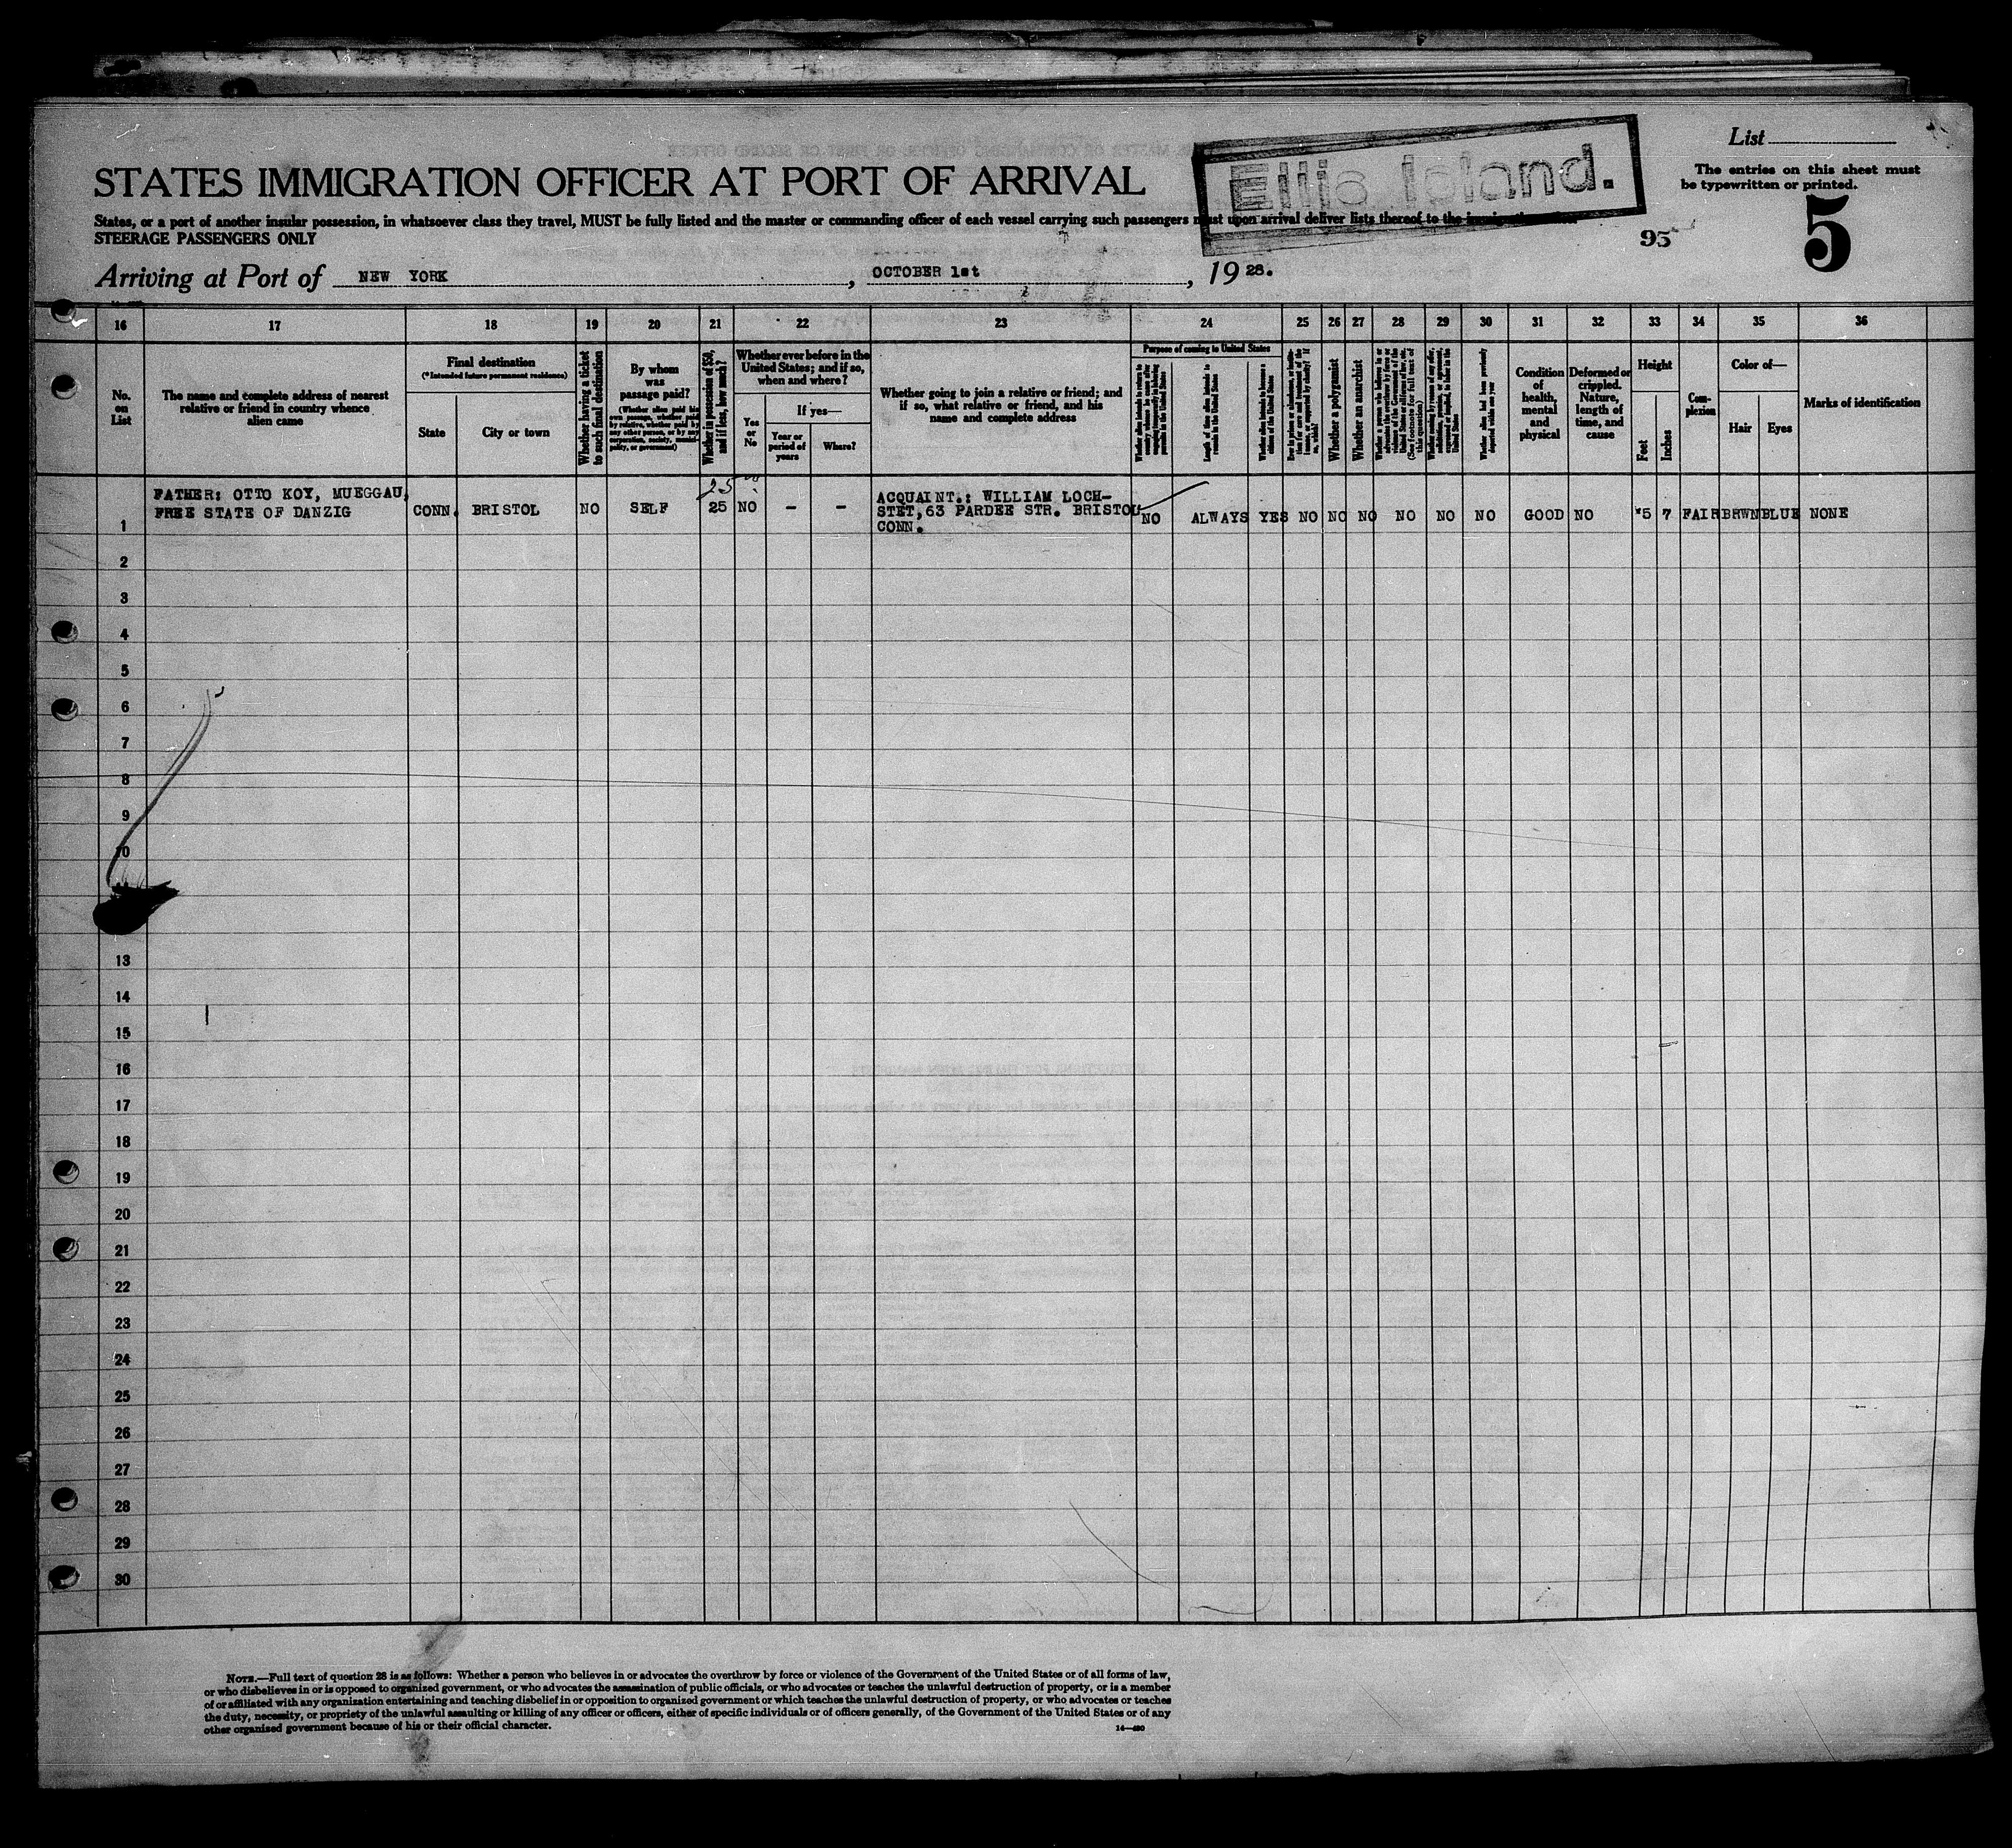 List
The entries on this sheet must
be typewritten or printed.
Ellis Island.
STATES IMMIGRATION OFFICER AT PORT OF ARRIVAL
States, or a port of another insular possession, in whatsoever class they travel, MUST be fully listed and the master or commanding officer of each vessel carrying such passengers must upon arrival deliver lists thereof to the immigration officer
STEERAGE PASSENGERS ONLY
95
5
Arriving at Port of NEW YORK, OCTOBER 1st, 1928.
16 17 18 19 20 21 22 23 24 25 26 27 28 29 30 31 32 33 34 35 36
No.
on
List
The name and complete address of nearest
relative or friend in country whence
alien came
Final destination
(*Intended future permanent residence)
State
City or town
Whether having a ticket
to such final destination
By whom
was
passage paid?
(Whether alien paid his
own passage, whether paid
by relative, whether paid by
any other person, or by any
corporation, society, munici-
pality, or government)
Whether in possession of $50,
and if less, how much?
Whether ever before in the
United States; and if so,
when and where?
Yes
or
No
If yes—
Year or
period of
years
Where?
Whether going to join a relative or friend; and
if so, what relative or friend, and his
name and complete address
Purpose of coming to United States
Length of time alien intends to
remain in the United States
Whether alien intends to become a
citizen of the United States
Whether a polygamist
Whether an anarchist
(See footnote for full text of
this question)
Whether alien had been previously
deported within one year
Condition
of
health,
mental
and
physical
Deformed or
crippled.
Nature,
length of
time, and
cause
Height
Feet
Inches
Com-
plexion
Color of—
Hair
Eyes
Marks of identification
1
FATHER: OTTO KOY, MUEGGAU,
FREE STATE OF DANZIG
CONN. BRISTOL NO SELF
25
25 NO - -
ACQUAINT.: WILLIAM LOCH-
STET, 63 PARDEE STR. BRISTOL
CONN.
NO ALWAYS YES NO NO NO NO NO NO GOOD NO 5 7 FAIR BRWN BLUE NONE
2
3
4
5
6
7
8
9
10
13
14
15
16
17
18
19
20
21
22
23
24
25
26
27
28
29
30
NOTE.—Full text of question 28 is as follows: Whether a person who believes in or advocates the overthrow by force or violence of the Government of the United States or of all forms of law,
or who disbelieves in or is opposed to organized government, or who advocates the assassination of public officials, or who advocates or teaches the unlawful destruction of property, or is a member
of or affiliated with any organization entertaining and teaching disbelief in or opposition to organized government or which teaches the unlawful destruction of property, or who advocates or teaches
the duty, necessity, or propriety of the unlawful assaulting or killing of any officer or officers, either of specific individuals or of officers generally, of the Government of the United States or of any
other organized government because of his or their official character.
14—490